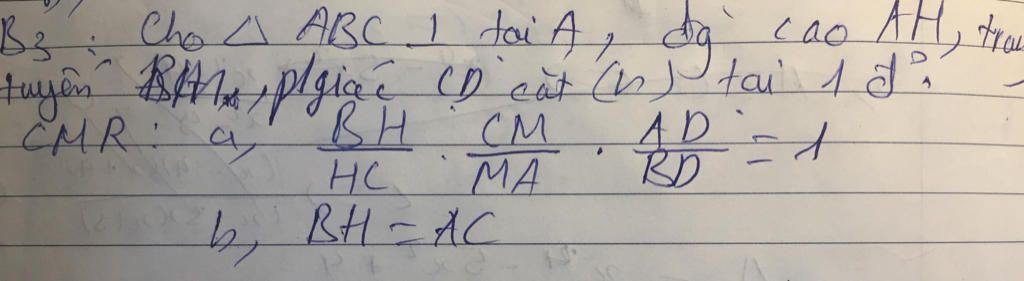 B3 : Cho △ ABC ⊥ tại A, đg cao AH, trg
tuyến BM, p/giác CD cắt (n) tại 1 đ'.
CMR : a, BH/HC . CM/MA . AD/BD = 1
b, BH = AC